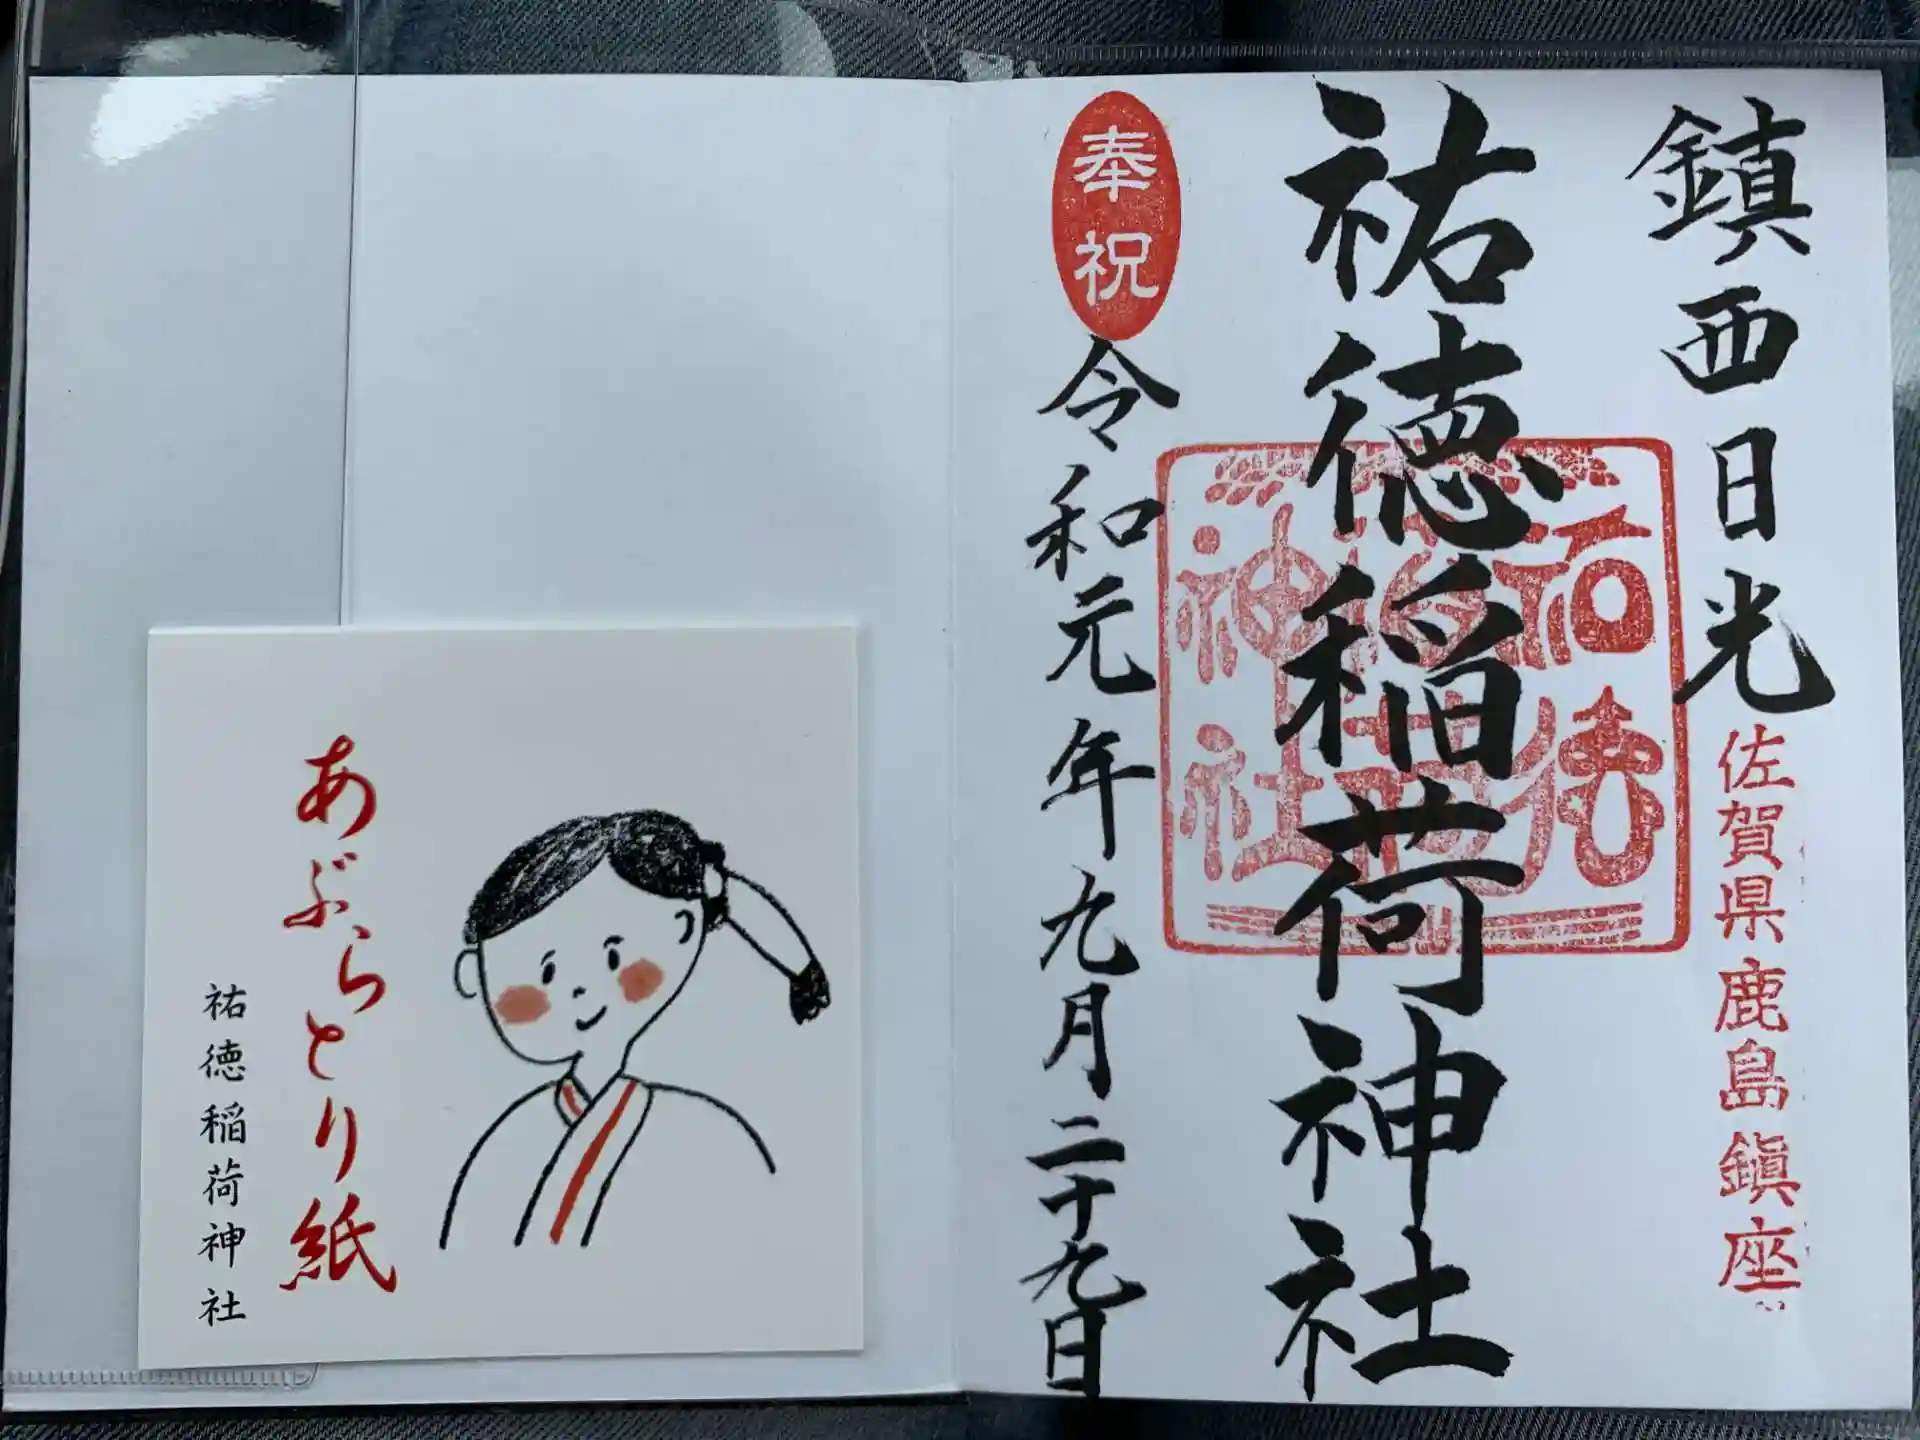 鎮西日光
佐賀県鹿島鎮座
祐徳稲荷神社
祐徳
稲荷
神社
奉祝
令和元年九月二十九日
あぶらとり紙
祐徳稲荷神社